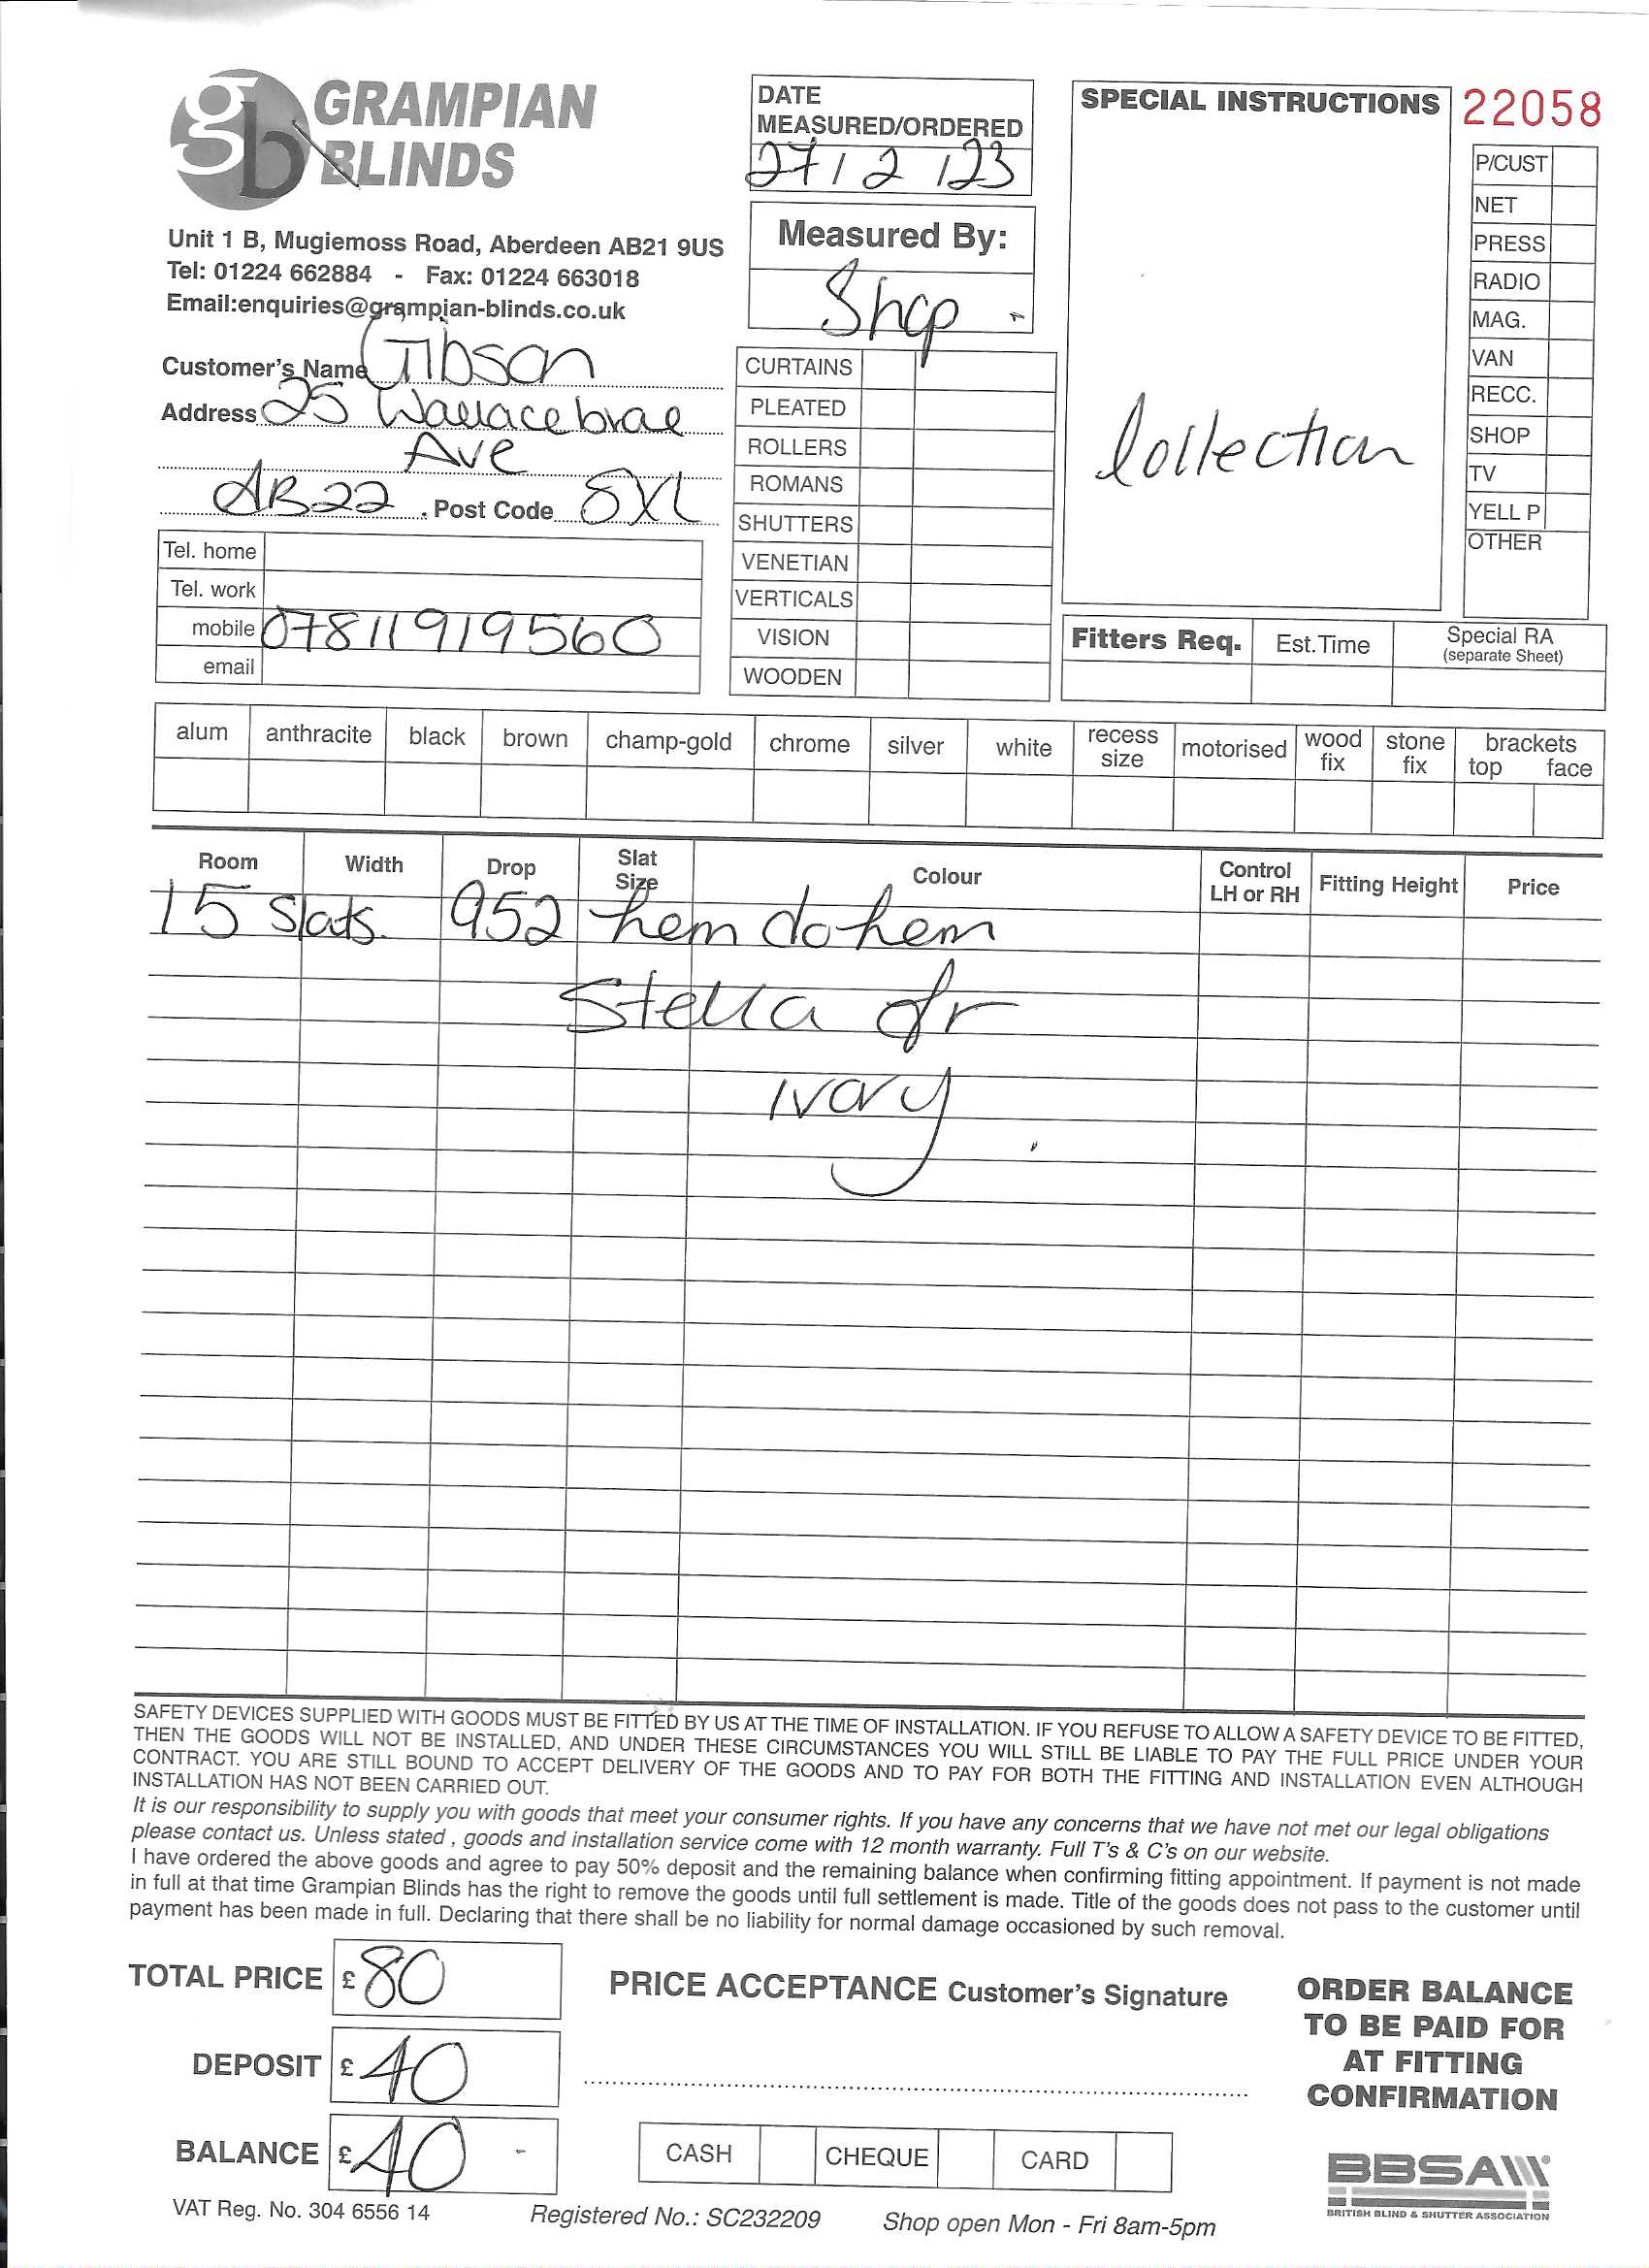 gb GRAMPIAN BLINDS
Unit 1 B, Mugiemoss Road, Aberdeen AB21 9US
Tel: 01224 662884 - Fax: 01224 663018
Email:enquiries@grampian-blinds.co.uk
Customer's Name Gibson
Address 25 Wallacebrae
Ave
AB22 . Post Code 8XL
Tel. home
Tel. work
mobile 07811919560
email
DATE
MEASURED/ORDERED
27/2/23
Measured By:
Shop
CURTAINS
PLEATED
ROLLERS
ROMANS
SHUTTERS
VENETIAN
VERTICALS
VISION
WOODEN
SPECIAL INSTRUCTIONS
Collection
22058
P/CUST
NET
PRESS
RADIO
MAG.
VAN
RECC.
SHOP
TV
YELL P
OTHER
Fitters Req. Est.Time Special RA
(separate Sheet)
alum anthracite black brown champ-gold chrome silver white recess size motorised wood fix stone fix brackets top face
Room Width Drop Slat Size Colour Control LH or RH Fitting Height Price
15 Slats. 952 hem to hem
Stella fr
ivory.
SAFETY DEVICES SUPPLIED WITH GOODS MUST BE FITTED BY US AT THE TIME OF INSTALLATION. IF YOU REFUSE TO ALLOW A SAFETY DEVICE TO BE FITTED,
THEN THE GOODS WILL NOT BE INSTALLED, AND UNDER THESE CIRCUMSTANCES YOU WILL STILL BE LIABLE TO PAY THE FULL PRICE UNDER YOUR
CONTRACT. YOU ARE STILL BOUND TO ACCEPT DELIVERY OF THE GOODS AND TO PAY FOR BOTH THE FITTING AND INSTALLATION EVEN ALTHOUGH
INSTALLATION HAS NOT BEEN CARRIED OUT.
It is our responsibility to supply you with goods that meet your consumer rights. If you have any concerns that we have not met our legal obligations
please contact us. Unless stated , goods and installation service come with 12 month warranty. Full T's & C's on our website.
I have ordered the above goods and agree to pay 50% deposit and the remaining balance when confirming fitting appointment. If payment is not made
in full at that time Grampian Blinds has the right to remove the goods until full settlement is made. Title of the goods does not pass to the customer until
payment has been made in full. Declaring that there shall be no liability for normal damage occasioned by such removal.
TOTAL PRICE £ 80
DEPOSIT £ 40
BALANCE £ 40 -
PRICE ACCEPTANCE Customer's Signature
CASH CHEQUE CARD
ORDER BALANCE
TO BE PAID FOR
AT FITTING
CONFIRMATION
BBSA
BRITISH BLIND & SHUTTER ASSOCIATION
VAT Reg. No. 304 6556 14 Registered No.: SC232209 Shop open Mon - Fri 8am-5pm